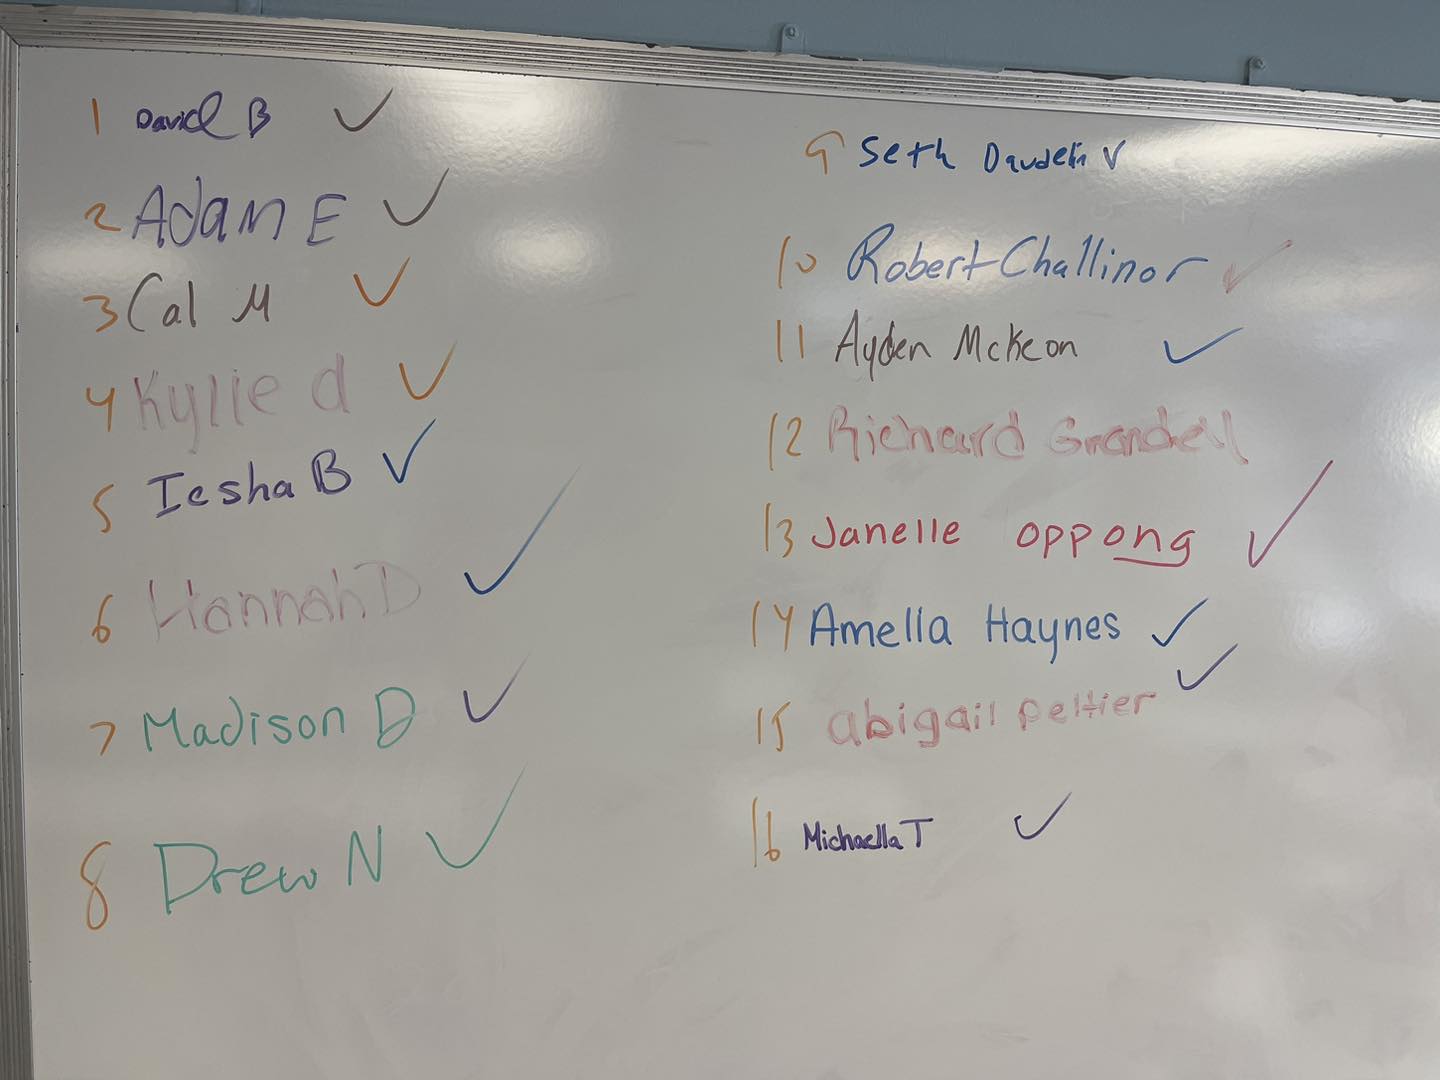 1 David B ✓
2 Adam E ✓
3 Cal M ✓
4 Kylie d ✓
5 Iesha B ✓
6 Hannah D ✓
7 Madison D ✓
8 Drew N ✓
9 Seth ✓
10 Robert Challinor ✓
11 Ayden McKeon ✓
12 Richard
13 Janelle oppong ✓
14 Amella Haynes ✓
15 abigail peltier ✓
16 Michaella T ✓